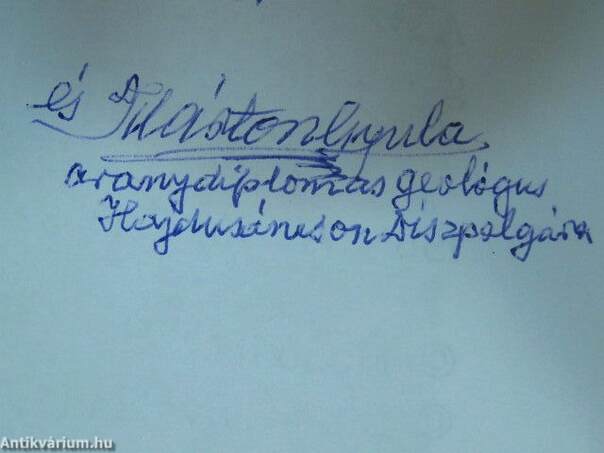 és Márton Gyula
aranydiplomás geológus
Hajdusámson Díszpolgára
Antikvárium.hu